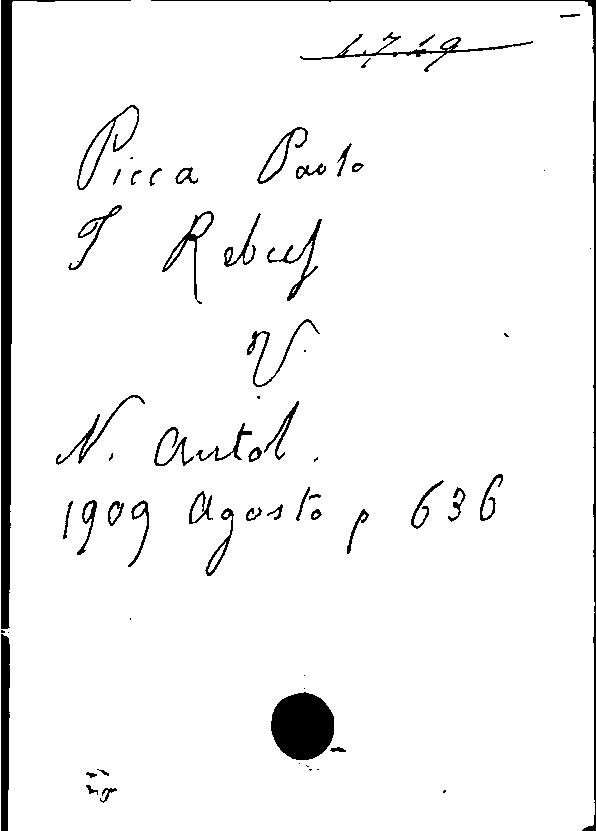 1.7.19
Picca Paolo
I Rebus
V.
N. Antol.
1909 Agosto p 636